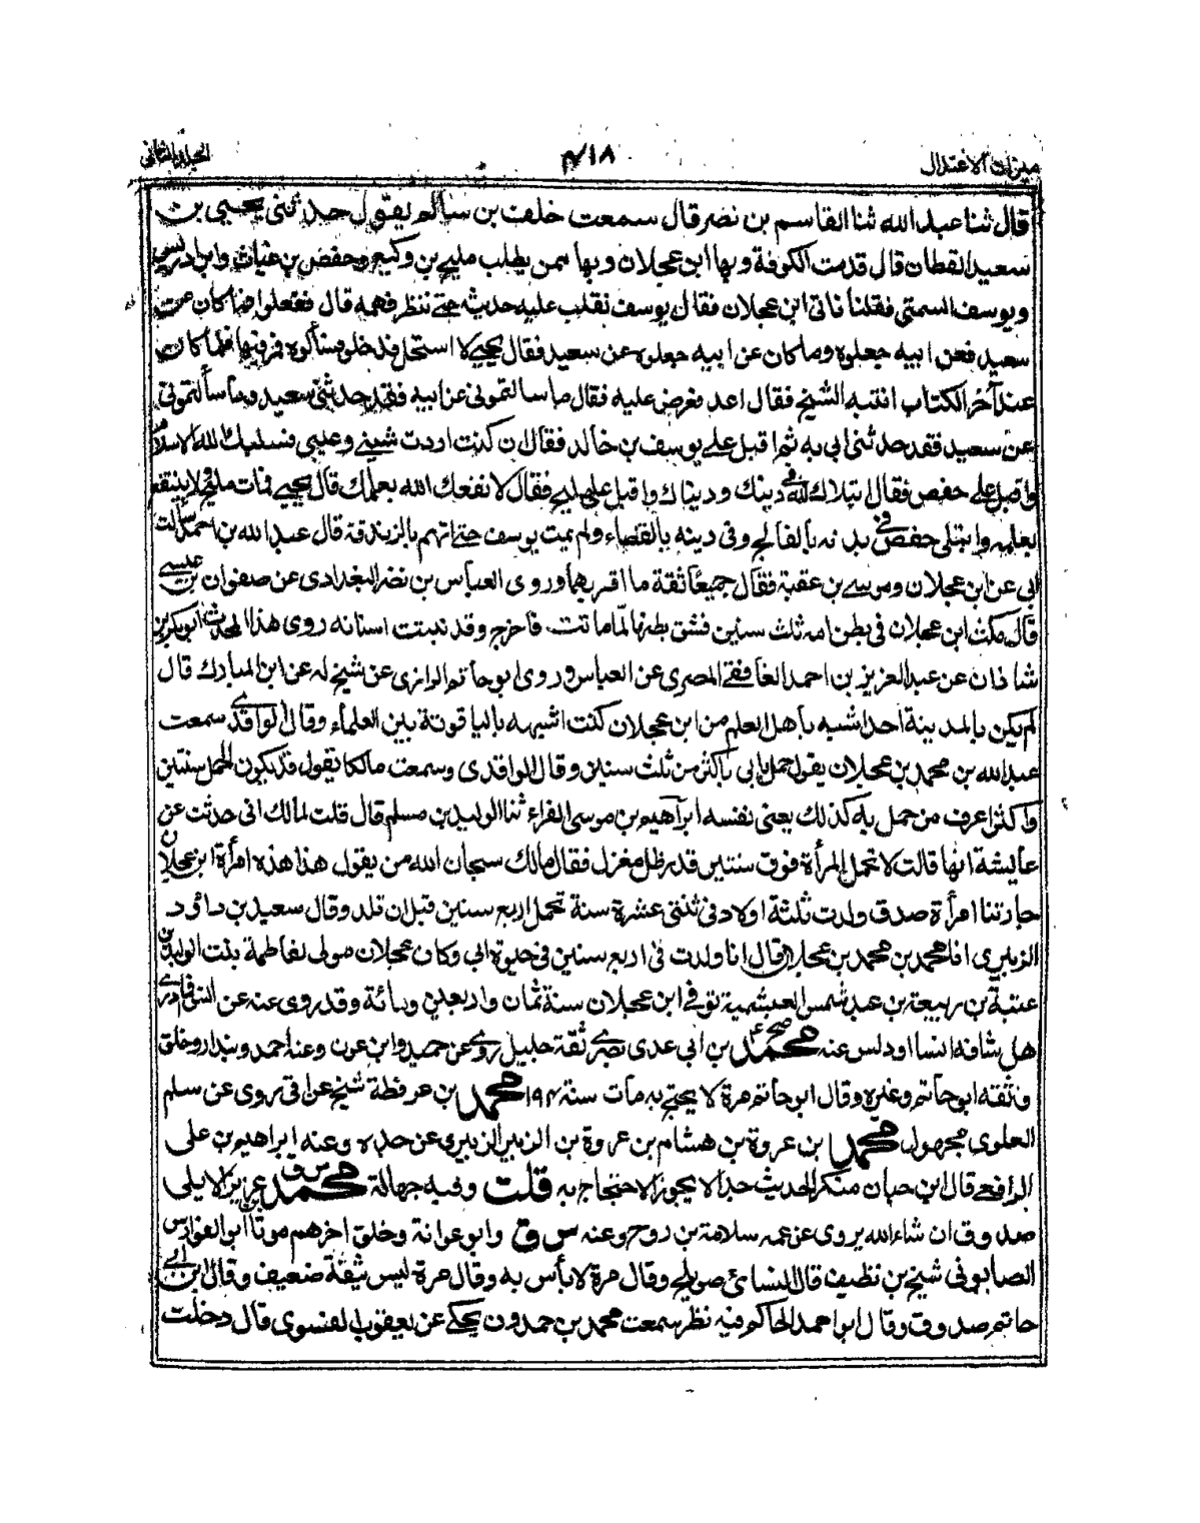 ميزان الاعتدال ٤١٨ الجلد الثاني
قال ثنا عبد الله ثنا القاسم بن نصر قال سمعت خلف بن سالم يقول حدثنى يحيى بن
سعيد القطان قال قدمت الكوفة وبها ابن عجلان وبها ممن يطلب مليح بن وكيع وحفص بن غياث وابن ادريس
ويوسف السمتي فقلنا ناتى ابن عجلان فقال يوسف نقلب عليه حديثه حتى ننظر فهمه قال ففعلوا فما كان عن
سعيد فعن ابيه جعلوه وما كان عن ابيه جعلوه عن سعيد فقال يحيى لا استحل فدخلوا فسألوه فمر فيها فلما كان
عند آخر الكتاب انتبه الشيخ فقال اعد فعرض عليه فقال ما سالتمونى عن ابيه فقد حدثنى سعيد وما سألتمونى
عن سعيد فقد حدثنى ابى به ثم اقبل على يوسف بن خالد فقال ان كنت اردت شينى وعيبى فسلبك الله الاسلام
واقبل على حفص فقال ابتلاك الله فى دينك ودنياك واقبل على مليح فقال لا نفعك الله بعلمك قال يحيى فمات مليح ولا ينتفع
بعلمه وابتلى حفص فى بدنه بالفالج وفى دينه بالقضاء ولم يمت يوسف حتى اتهم بالزندقة قال عبد الله بن احمد سألت
ابى عن ابن عجلان وموسى بن عقبة فقال جميعا ثقة ما اقربهما وروى العباس بن نصر البغدادى عن صفوان بن عيسى
قال مكث ابن عجلان فى بطن امه ثلث سنين فشق بطنها لمّا ماتت فاخرج وقد نبتت اسنانه روى هذا المحدث ابو بكر بن
شاذان عن عبد العزيز بن احمد الغافقى المصرى عن العباس وروى ابو حاتم الرازى عن شيخ له عن ابن المبارك قال
لم يكن بالمدينة احد اشبه باهل العلم من ابن عجلان كنت اشبهه بالياقوتة بين العلماء وقال الواقدى سمعت
عبد الله بن محمد بن عجلان يقول حمل بابى باكثر من ثلث سنين وقال الواقدى وسمعت مالكا يقول قد يكون الحمل سنتين
واكثر اعرف من حمل به كذلك يعنى نفسه ابراهيم بن موسى الفراء ثنا الوليد بن مسلم قال قلت لمالك انى حدثت عن
عايشة انها قالت لا تحمل المرأة فوق سنتين قدر ظل مغزل فقال مالك سبحان الله من يقول هذا هذه امرأة ابن عجلان
جارتنا امرأة صدق ولدت ثلثة اولاد فى ثنتى عشرة سنة تحمل اربع سنين قبل ان تلد وقال سعيد بن داؤد
الزبيرى انا محمد بن محمد بن عجلان قال انا ولدت فى اربع سنين فى حيوة ابى وكان عجلان مولى لفاطمة بنت الوليد بن
عتبة بن ربيعة بن عبد شمس العبشمية توفى ابن عجلان سنة ثمان واربعين ومائة وقد روى عنه عن انس فما درى
هل شافه انسا او دلس عنه محمد صح ع بن ابى عدى بصرى ثقة جليل روى عن حميد وابن عون وعنه احمد وبندار وخلق
وثقه ابو حاتم وغيره وقال ابو حاتم مرة لا يحتج به مات سنة ١٩٤ محمد بن عرفطة شيخ عراقى روى عن سلم
العلوى مجهول محمد ابن عروة بن هشام بن عروة بن الزبير الزبيرى عن جده وعنه ابراهيم بن على
الرافعى قال ابن حبان منكر الحديث جدا لا يجوز الاحتجاج به قلت وفيه جهالة محمد س ق بن عزيز الايلى
صدوق ان شاء الله يروى عن عمه سلامة بن روح وعنه س ق وابو عوانة وخلق اخرهم موتا ابو الفوارس
الصابونى شيخ بن نظيف قال النسائى صويلح وقال مرة لا بأس به وقال مرة ليس بثقة ضعيف وقال ابن ابى
حاتم صدوق وقال ابو احمد الحاكم فيه نظر سمعت محمد بن حمدون يحكى عن يعقوب الفسوى قال دخلت